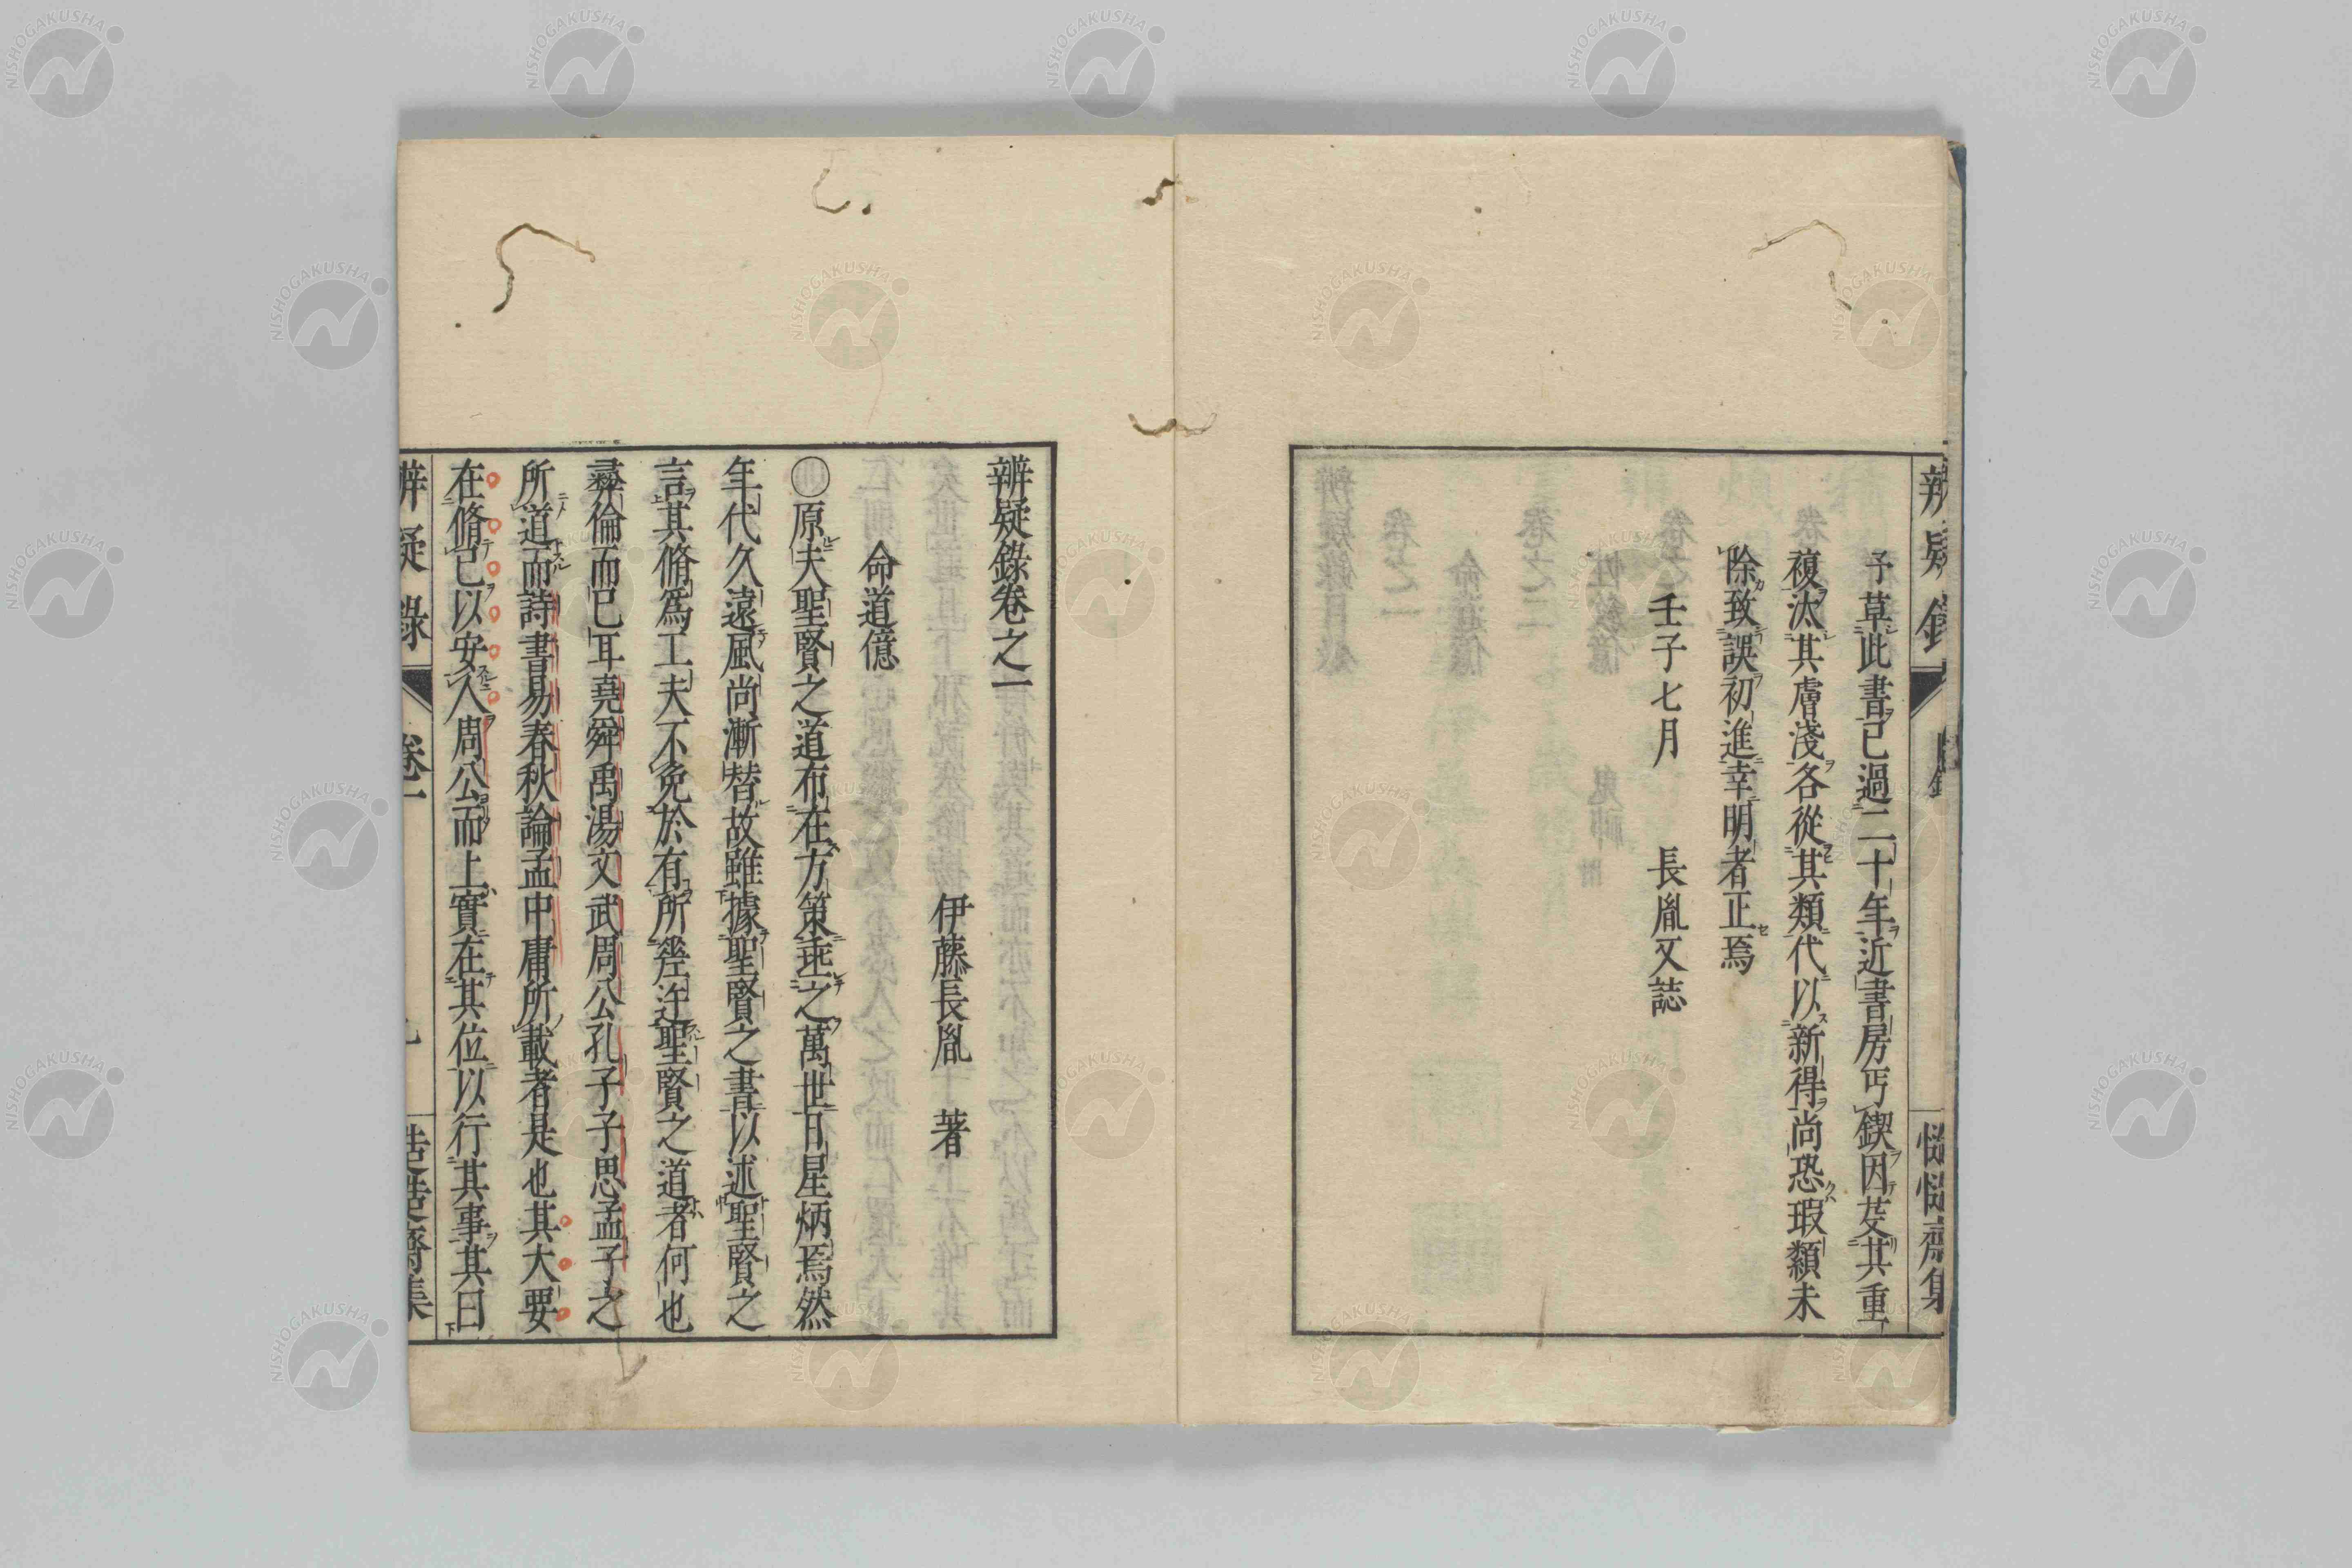 予草此書已過二十年近書房丐鍥因芟其重
複汰其膚淺各從其類代以新得尚恐瑕纇未
除致誤初進幸明者正焉
壬子七月 長胤又誌
辨疑錄卷之一
伊藤長胤 著
命道億
○原夫聖賢之道布在方策垂之萬世日星炳焉然
年代久遠風尚漸替故雖據聖賢之書以述聖賢之
言其脩爲工夫不免於有所差迕聖賢之道者何也
彝倫而已耳堯舜禹湯文武周公孔子子思孟子之
所道而詩書易春秋論孟中庸所載者是也其大要
在脩己以安人周公而上實在其位以行其事其曰
辨疑錄 卷一
NISHOGAKUSHA